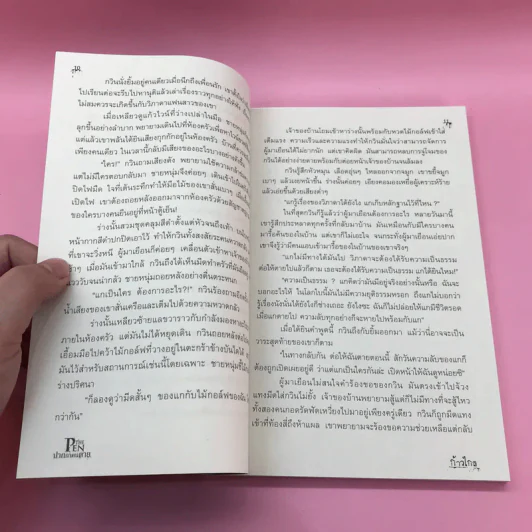 กวินนั่งยิ้มอยู่คนเดียวเมื่อนึกถึงเพื่อนรัก
ไม่สมควรจะเกิดขึ้นกับวิภาดาแฟนสาวของเขา
เมื่อเหลียวดูแก้วไวน์ที่ว่างเปล่าในมือ
ลุกขึ้นอย่างลำบาก พยายามเดินไปที่ห้องครัวเพื่อหา
แต่แล้วเขาพลันได้ยินเสียงกุกกักอยู่ในห้องครัว
เพียงคนเดียว ในเวลานี้กลับมีเสียงของอะไรบางอย่าง
"ใคร!" กวินถามเสียงดัง พยายามใช้ความกล้า
แต่ไม่มีใครตอบกลับมา ชายหนุ่มจึงค่อยๆ เดิน
เปิดไฟ เขาต้องถอยหลังออกมาจากห้องครัวด้วย
ของใครบางคนยืนอยู่ที่หน้าตู้เย็น!
ร่างนั้นสวมชุดคลุมสีดำตั้งแต่หัวจนถึงเท้า
"แกเป็นใคร ต้องการอะไร?!" กวินร้องถาม
น้ำเสียงของเขาสั่นเครือและเต็มไปด้วยความหวาดกลัว
ร่างนั้นเหลียวซ้ายแลขวาราวกับกำลังมองหา
ภายในห้องครัว แต่มันไม่ได้หยุดเดิน กวินถอยหลัง
เอื้อมมือไปคว้าไม้กอล์ฟที่วางอยู่ในตะกร้าข้างบันไดได้
มันไว้สำหรับสถานการณ์เช่นนี้โดยเฉพาะ ชายหนุ่ม
ร่างปริศนา
"ก็ลองดูว่ามีดสั้นๆ ของแกกับไม้กอล์ฟของฉัน
กว่ากัน"
THE PEN
เจ้าของบ้านโถมเข้าหาร่างนั้นพร้อมกับหวดไม้กอล์ฟเข้าใส่
เต็มแรง ความเร็วและความแรงทำให้กวินมั่นใจว่าสามารถจัดการ
ผู้มาเยือนได้ไม่ยากนัก แต่เขาคิดผิด มันสามารถหลบการจู่โจมของ
กวินได้อย่างง่ายดายพร้อมกับต่อยหน้าเจ้าของบ้านจนล้มลง
กวินรู้สึกหัวหมุน เลือดอุ่นๆ ไหลออกจากจมูก เขาขยี้จมูก
เบาๆ แล้วเงยหน้าขึ้น ร่างนั้นค่อยๆ เอียงคอมองเหยื่อผู้เคราะห์ร้าย
แล้วเอ่ยขึ้นด้วยเสียงต่ำๆ
"แกรู้เรื่องของวิภาดาได้ยังไง แกเก็บหลักฐานไว้ที่ไหน ?"
ในที่สุดกวินก็รู้แล้วว่าผู้มาเยือนต้องการอะไร หลายวันมานี้
เขารู้สึกประหลาดทุกครั้งที่กลับมาบ้าน มันเหมือนกับมีใครบางคน
มารื้อค้นของในบ้าน แต่เขาก็ไม่เอะใจ จนกระทั่งผู้มาเยือนเอ่ยปาก
เขาจึงรู้ว่ามีคนแอบเข้ามารื้อของในบ้านของเขาจริงๆ
"แกไม่มีทางได้มันไป วิภาดาจะต้องได้รับความเป็นธรรม
ต่อให้ตายไปแล้วก็ตาม เธอจะต้องได้รับความเป็นธรรม แกได้ยินไหม!"
"ความเป็นธรรม ? แกคิดว่ามันมีอยู่จริงอย่างนั้นหรือ ฉันจะ
บอกอะไรให้ ในโลกใบนี้มันไม่มีความยุติธรรมหรอก ถึงแกไม่บอกว่า
รู้เรื่องนังนั่นได้ยังไงก็ช่างเถอะ ยังไงซะ ฉันก็ไม่ปล่อยให้แกมีชีวิตรอด
เมื่อแกตายไป ความลับทุกอย่างก็จะหายไปพร้อมกับแก!"
เมื่อได้ยินคำพูดนี้ กวินถึงกับยิ้มออกมา แม้ว่านี่อาจจะเป็น
วาระสุดท้ายของเขาก็ตาม
"ในทางกลับกัน ต่อให้ฉันตายตอนนี้ สักวันความลับของแกก็
ต้องถูกเปิดเผยอยู่ดี ว่าแต่แกเป็นใครกันล่ะ เปิดหน้าให้ฉันดูหน่อยซิ"
ผู้มาเยือนไม่สนใจคำร้องขอของกวิน มันตรงเข้าไปจ้วง
แทงมีดใส่กวินไม่ยั้ง เจ้าของบ้านพยายามสู้แต่ก็ไม่มีทางที่จะสู้ไหว
ทั้งสองคนกอดรัดฟัดเหวี่ยงไปมาอยู่เพียงครู่เดียว กวินก็ถูกมีดแทง
เข้าที่ท้องสี่ถึงห้าแผล เขาพยายามจะร้องขอความช่วยเหลือแต่กลับ